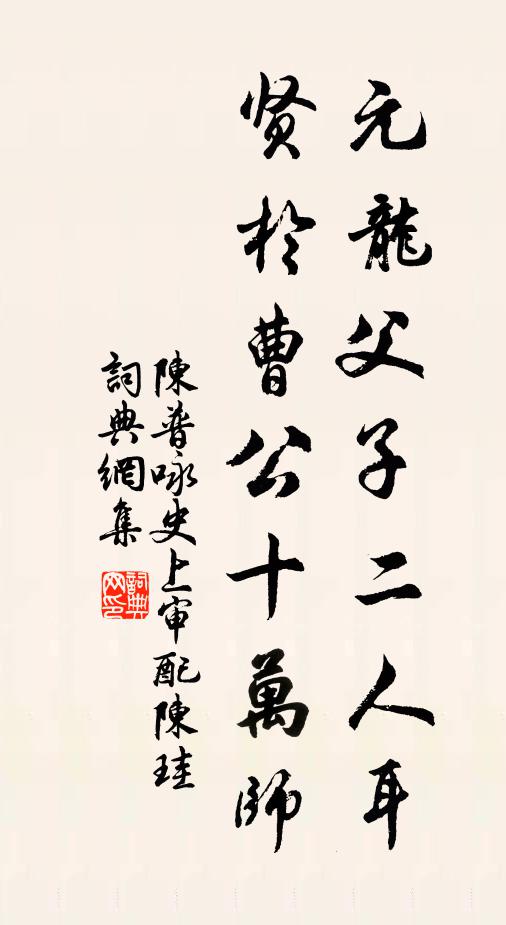 元龍父子二人耳
贤於曹公十萬師
陳普咏史上审配陳珪
詞典網集
詞典网印